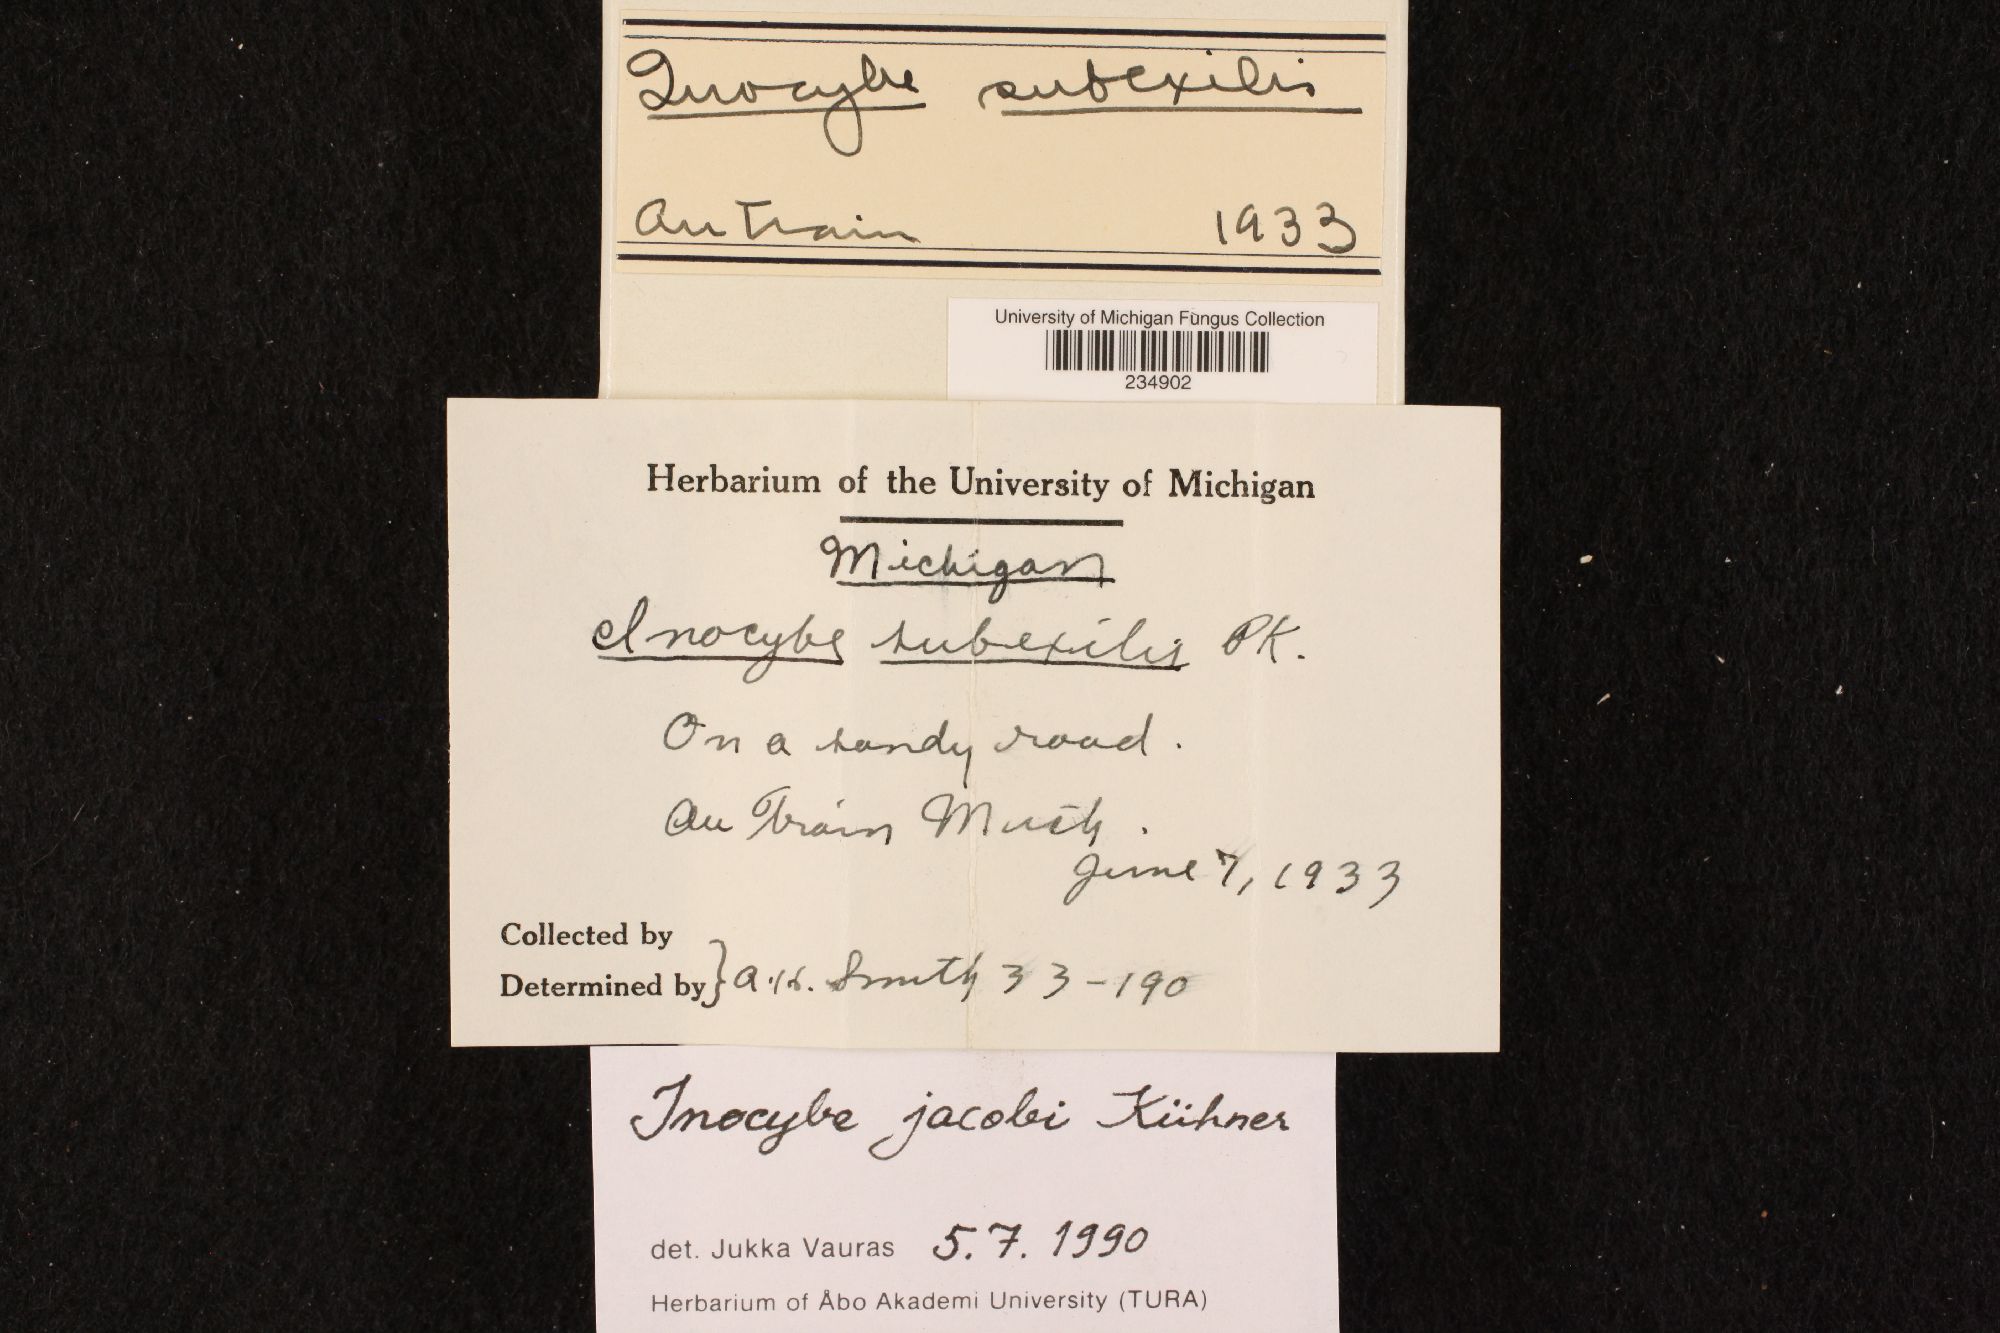 Inocybe subexilis
Au Train 1933
University of Michigan Fungus Collection
234902
Herbarium of the University of Michigan
Michigan
Inocybe subexilis PK.
On a sandy road.
Au Train Mich.
June 7, 1933
Collected by
Determined by } A.H. Smith 33-190
Inocybe jacobi Kühner
det. Jukka Vauras 5.7.1990
Herbarium of Åbo Akademi University (TURA)